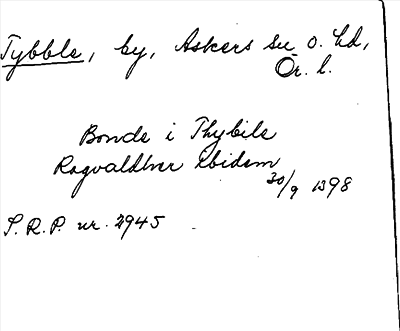 Tybble, by, Askers sn o. hd,
Ör. l.
Bonde i Thybile
Ragvaldher ibidem
30/9 1398
S.R.P. nr. 2945